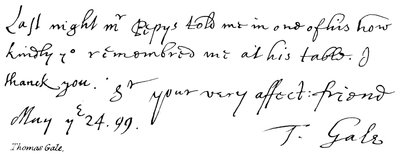 Last night mr Pepys told me in one of his how
kindly yo remembred me at his table. I
thanck you. Sr your very affect: friend
May ye 24. 99.
T. Gale
Thomas Gale.